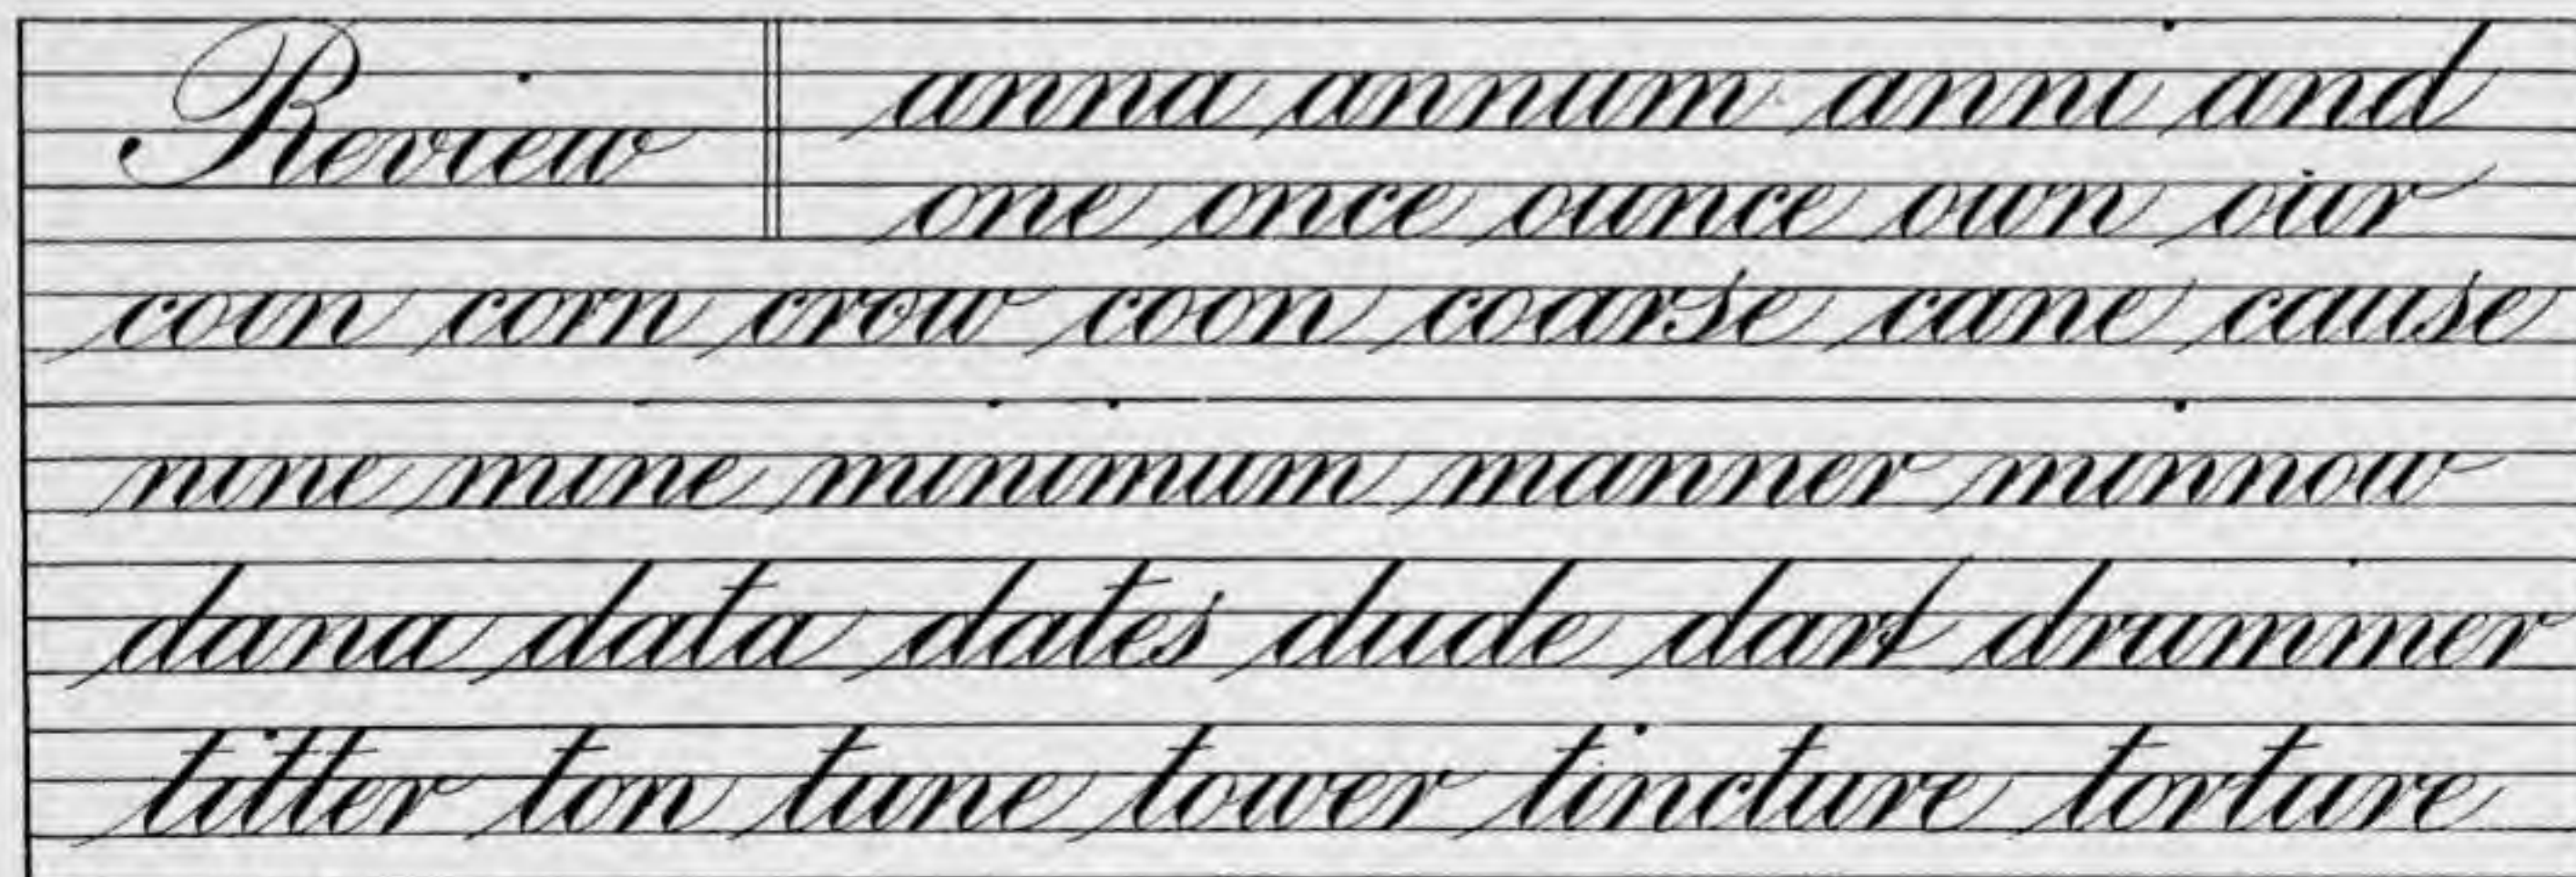 Review
anna annum anni and
one once ounce own our
coin corn crow coon coarse cane cause
nine mine minimum manner minnow
dana data dates dude dart drummer
titter ton tune tower tincture torture